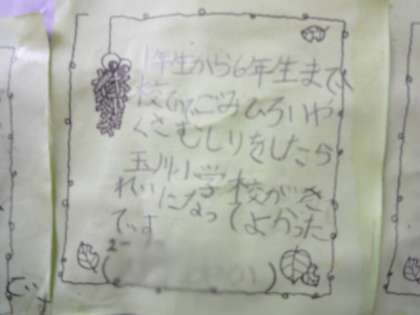 1年生から6年生まで、
校でごみひろいや
くさむしりをしたら
玉川小学校がき
れいになってよかった
です
2-